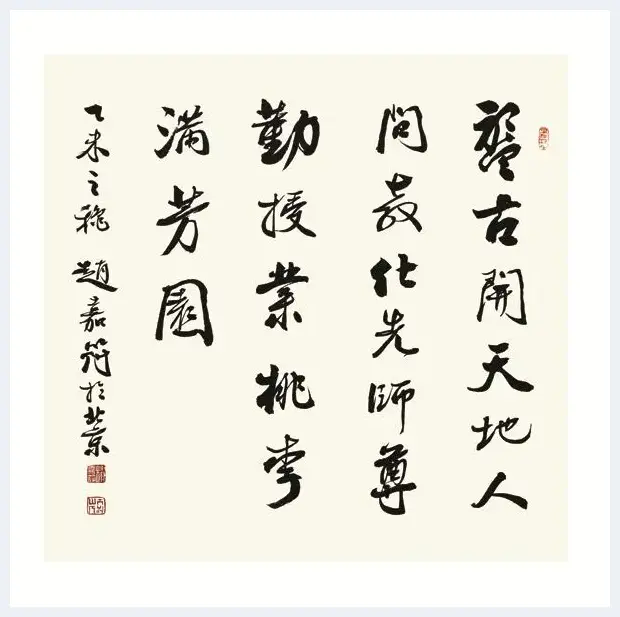 盤古開天地人
問教仕先師尊
勤授業桃李
滿芳園
乙未之秋趙嘉符於北京